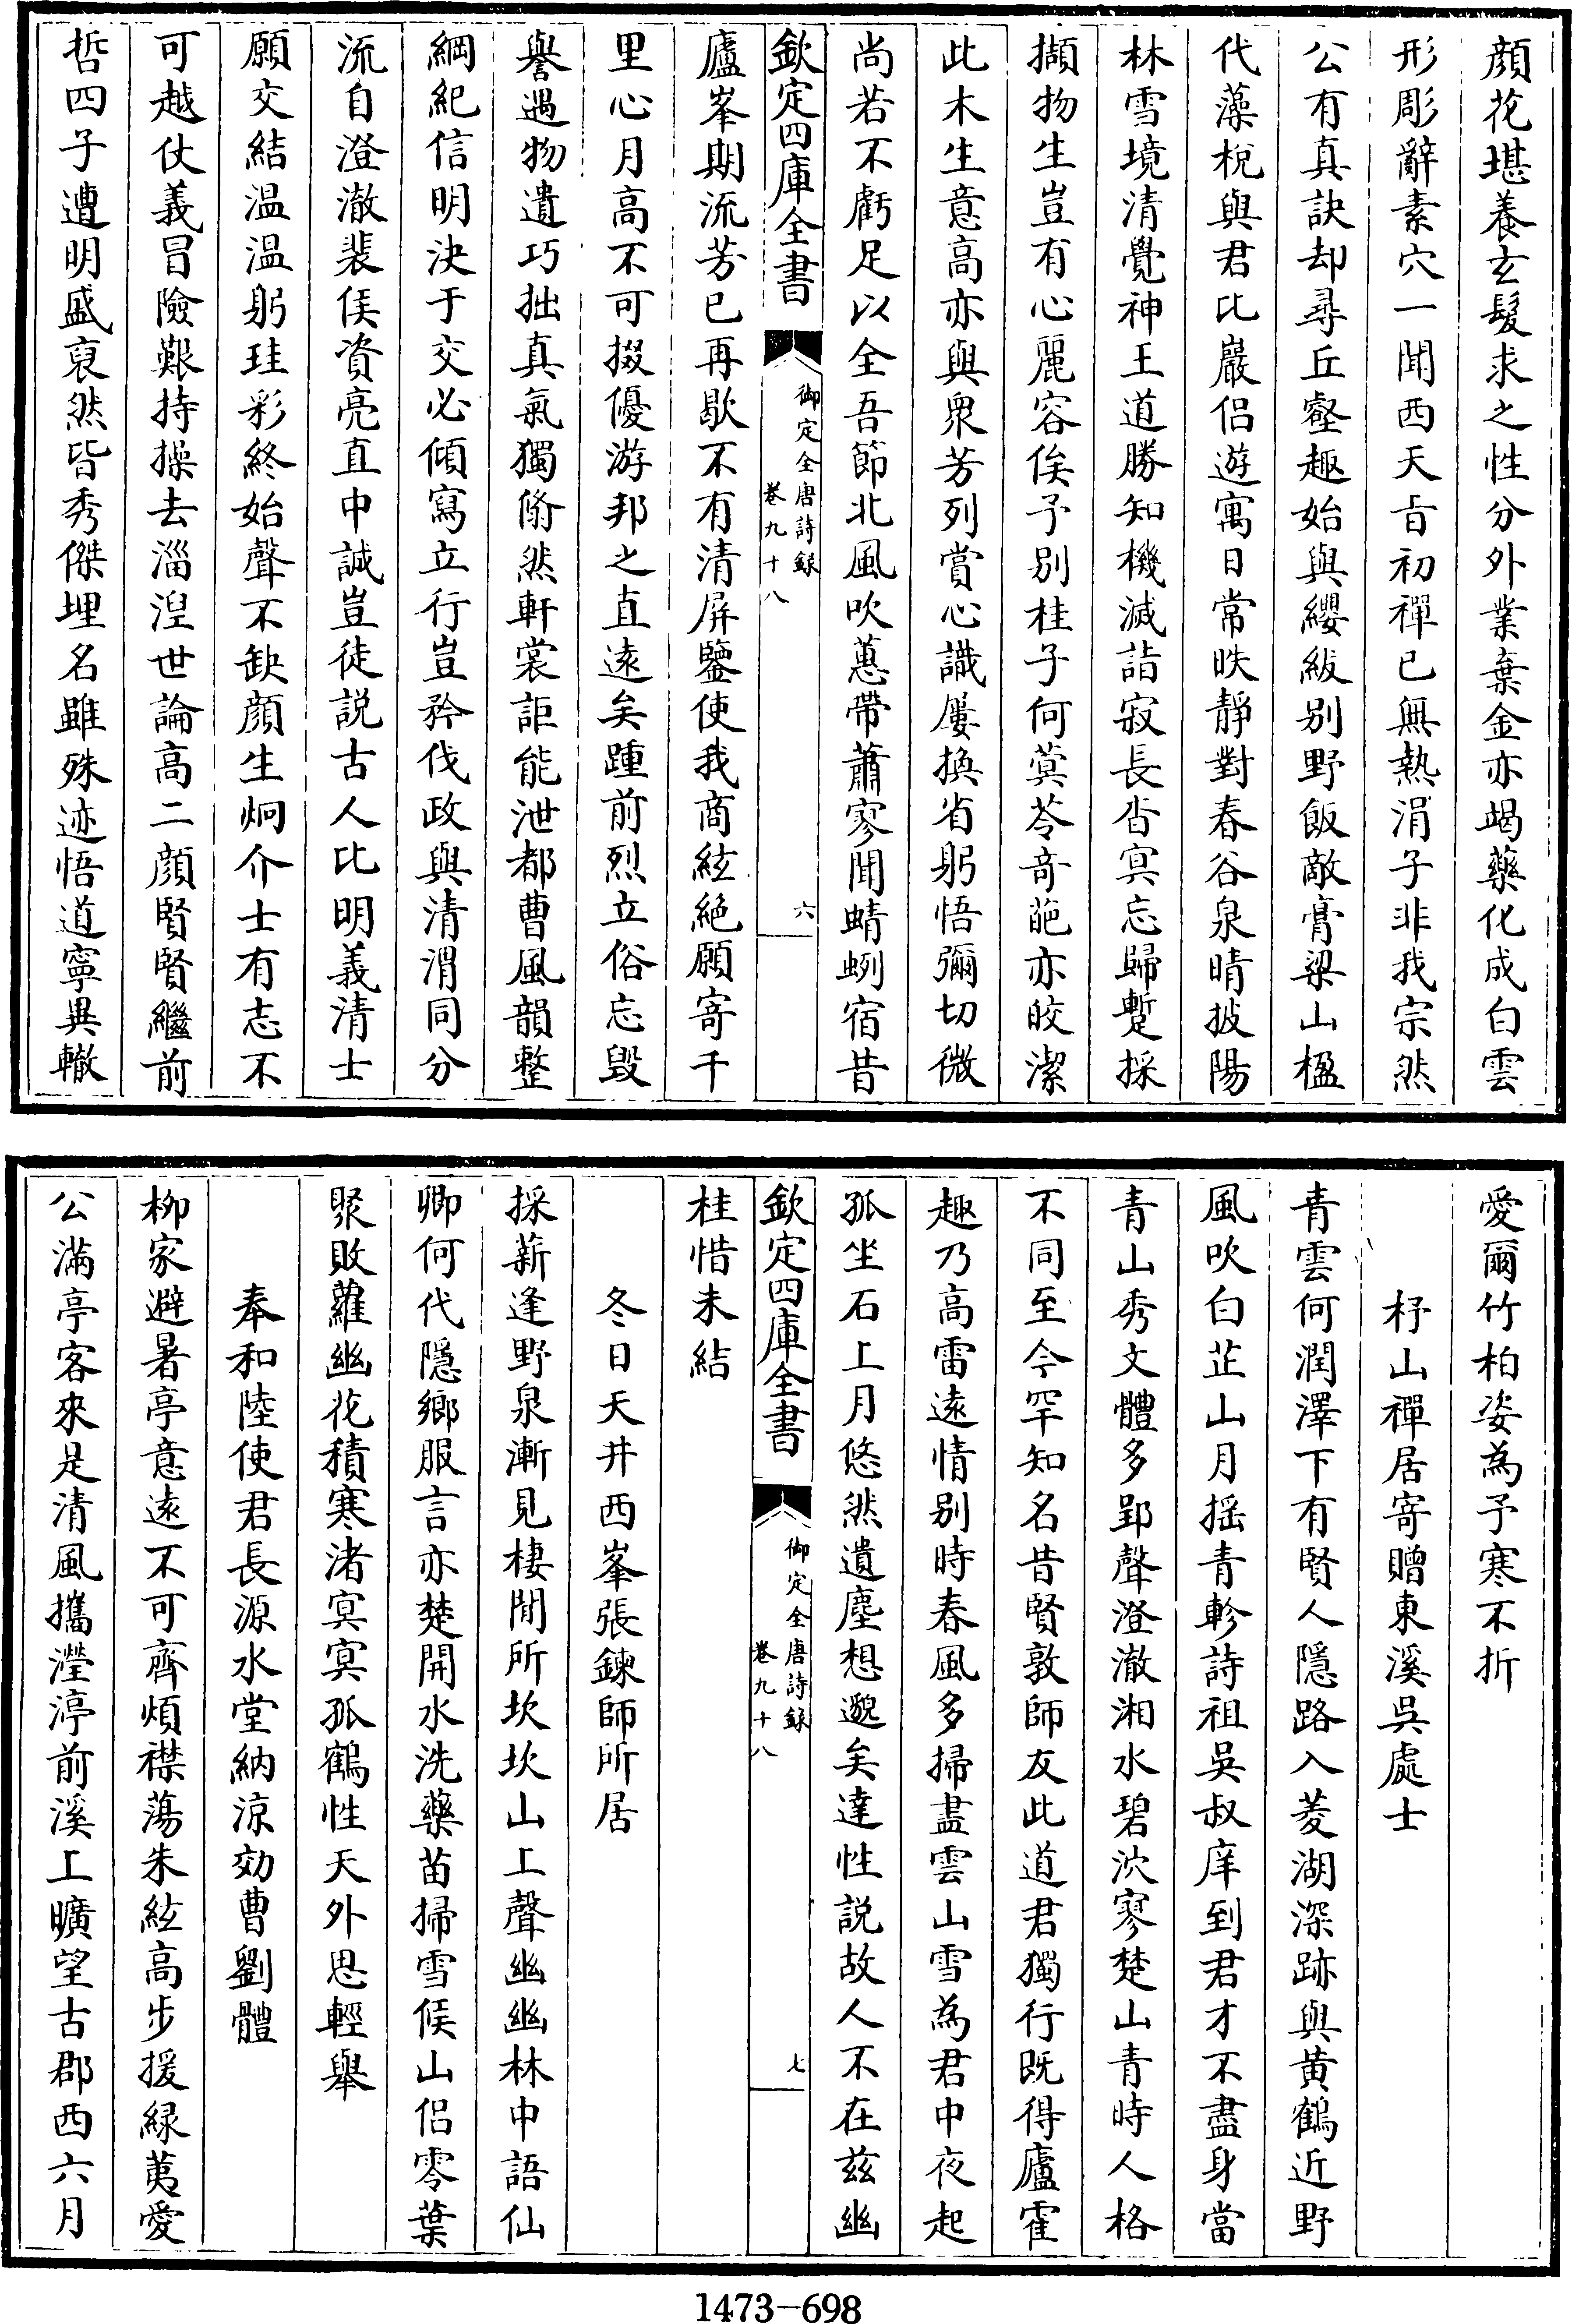 顔花堪養玄髮求之性分外業棄金亦竭藥化成白雲
形彫辭素穴一聞西天旨初禪已無熱涓子非我宗然
公有真訣却尋丘壑趣始與纓紱别野飯敵膏粱山楹
代藻梲與君比巖侣遊寓日常昳靜對春谷泉晴披陽
林雪境清覺神王道勝知機滅詣寂長杳冥忘歸蹔採
擷物生豈有心麗容俟予别桂子何蓂苓竒葩亦皎潔
此木生意高亦與衆芳列賞心識屢換省躬悟彌切微
尚若不虧足以全吾節北風吹蕙帶蕭寥聞蜻蛚宿昔
欽定四庫全書
御定全唐詩録
卷九十八
六
廬峯期流芳已再歇不有清屏鑒使我商絃絶願寄千
里心月高不可掇優游邦之直遠矣踵前烈立俗忘毁
譽遇物遺巧拙真氣獨翛然軒裳詎能泄都曹風韻整
綱紀信明決于交必傾寫立行豈矜伐政與清渭同分
流自澄澈裴侯資亮直中誠豈徒説古人比明義清士
願交結温温躬珪彩終始聲不缺顔生炯介士有志不
可越仗義冒險艱持操去淄涅世論高二顔賢賢繼前
哲四子遭明盛裒然皆秀傑埋名雖殊迹悟道寧異轍
愛爾竹柏姿為予寒不折
杼山禪居寄贈東溪吳處士
青雲何潤澤下有賢人隱路入菱湖深跡與黄鶴近野
風吹白芷山月揺青軫詩祖吳叔庠到君才不盡身當
青山秀文體多郢聲澄澈湘水碧泬寥楚山青時人格
不同至今罕知名昔賢敦師友此道君獨行既得廬霍
趣乃高雷遠情别時春風多掃盡雲山雪為君中夜起
孤坐石上月悠然遺塵想邈矣達性説故人不在兹幽
欽定四庫全書
御定全唐詩録
卷九十八
七
桂惜未結
冬日天井西峯張鍊師所居
採薪逢野泉漸見棲閒所坎坎山上聲幽幽林中語仙
卿何代隱鄉服言亦楚開水洗藥苗掃雪候山侣零葉
聚敗蘿幽花積寒渚冥冥孤鶴性天外思輕舉
奉和陸使君長源水堂納涼効曹劉體
柳家避暑亭意遠不可齊煩襟蕩朱絃高步援緑荑愛
公滿亭客來是清風攜瀅渟前溪上曠望古郡西六月
1473-698